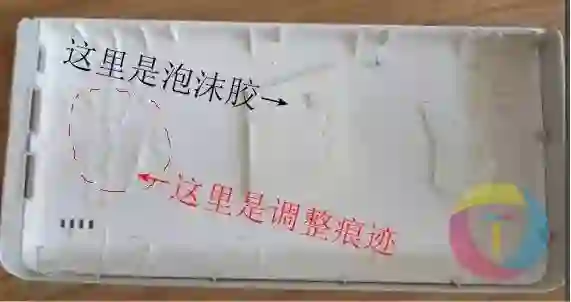 这里是泡沫胶→
←这里是调整痕迹
T